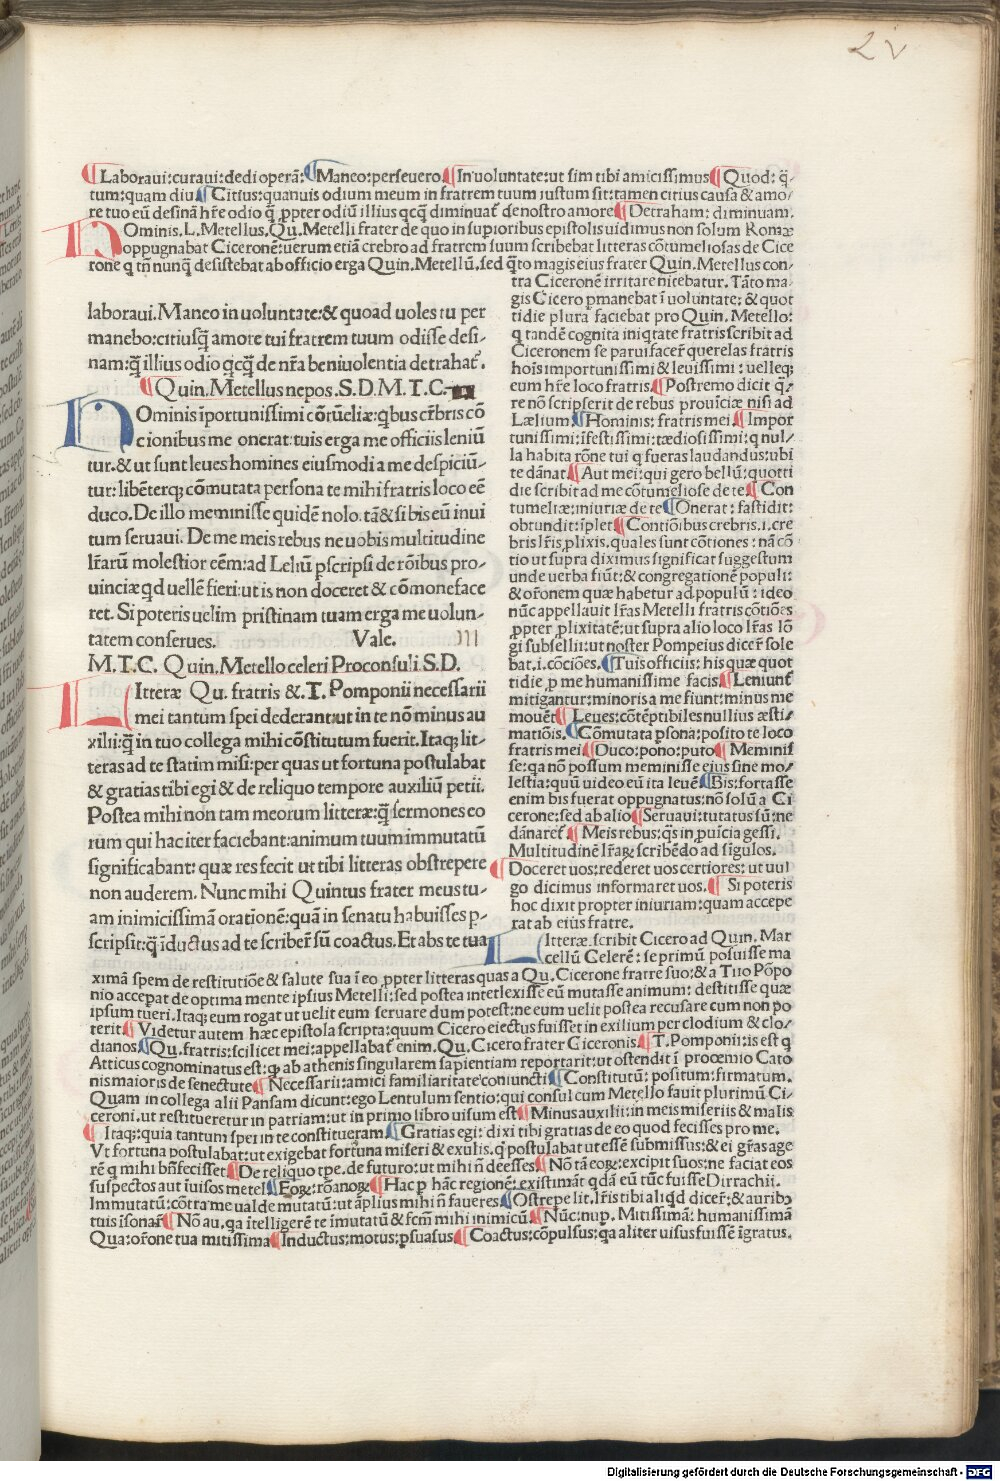 ¶ Laboraui: curaui: dedi operā: ¶ Maneo: perseuero ¶ In uoluntate: ut sim tibi amicissimus ¶ Quod: q̄-
tum: quam diu ¶ Citius: quanuis odium meum in fratrem tuum iustum sit: tamen citius causa & amo/
re tuo eū desinā hr̄e odio q̄ ꝓpter odiū illius qcq̄ diminuat̃ de nostro amore ¶ Detraham: diminuam.
HOminis. L. Metellus. Qu. Metelli frater de quo in suꝑioribus epistolis uidimus non solum Romæ
oppugnabat Ciceronē: uerum etiā crebro ad fratrem suum scribebat litteras cōtumeliosas de Cice
rone q tñ nunq̄ desistebat ab officio erga Quin. Metellū. sed q̄to magis eius frater Quin. Metellus con-
tra Ciceronē irritare nitebatur. Tāto ma
gis Cicero ꝑmanebat ī uoluntate: & quot
tidie plura faciebat pro Quin. Metello:
q tandē cognita iniq̄tate fratris scribit ad
Ciceronem se parui facer̃ querelas fratris
hoīs importunissimi & leuissimi: uelleq;
eum hr̄e loco fratris ¶ Postremo dicit q̄/
re nō scripserit de rebus prouīciæ nisi ad
Lælium ¶ Hominis: fratris mei ¶ Impor
tunissimi: īfestissimi: tædiosissimi: q nul/
la habita rōne tui q fueras laudandus: ubi
te dānat ¶ Aut mei: qui gero bellū: quotti
die scribit ad me cōtumeliose de te ¶ Con
tumeliæ: iniuriæ de te ¶ Onerat: fastidit:
obtundit: īplet ¶ Contiōibus crebris. i. cre
bris lr̄is ꝓlixis. quales sunt cōtiones: nā cō
tio ut supra diximus significat suggestum
unde uerba fiūt: & congregationē populi:
& or̄onem quæ habetur ad populū: ideo
nūc appellauit lr̄as Metelli fratris cōtiōes
ꝓpter ꝓlixitatē: ut supra alio loco lr̄as lō
gi subsellii: ut noster Pompeius dicer̃ sole
bat. i. cōciōes. ¶ Tuis officiis: his quæ quot
tidie ꝓ me humanissime facis ¶ Leniunt̃
mitigantur: minoris a me fiunt: minus me
mouēt ¶ Leues: cōtēptibiles nullius æsti/
matiōis. ¶ Cōmutata ꝑsona: posito te loco
fratris mei ¶ Duco: pono: puto ¶ Meminis
se: qa nō possum meminisse eius sine mo/
lestia: quū uideo eū ita leuē ¶ Bis: fortasse
enim bis fuerat oppugnatus: nō solū a Ci
cerone: sed ab alio ¶ Seruaui: tutatus sū: ne
dānaret̃ ¶ Meis rebus: qs in ꝓuīcia gessi.
Multitudinē lr̄aꝝ scribēdo ad sīgulos.
¶ Doceret uos: rederet uos certiores: ut uul
go dicimus informaret uos. ¶ Si poteris
hoc dixit propter iniuriam: quam accepe
rat ab eius fratre.
laboraui. Maneo in uoluntate: & quoad uoles tu per
manebo: citiusq̄ amore tui fratrem tuum odisse desi-
nam: q̄ illius odio qcq̄ de nr̄a beniuolentia detrahat̃.
¶ Quin. Metellus nepos. S. D. M. T. C.
HOminis īportunissimi cōtūeliæ: qbus cr̄bris cō
cionibus me onerat: tuis erga me officiis leniū
tur. & ut sunt leues homines eiusmodi a me despiciū-
tur: libēterq; cōmutata persona te mihi fratris loco eē
duco. De illo meminisse quidē nolo. tā& si bis eū inui
tum seruaui. De me meis rebus ne uobis multitudine
lr̄arū molestior eēm: ad Leliū ꝑscripsi de rōibus pro-
uinciæ qd uellē fieri: ut is non doceret & cōmoneface
ret. Si poteris uelim pristinam tuam erga me uolun-
tatem conserues. Vale. III
M. T. C. Quin. Metello celeri Proconsuli S. D.
LItteræ Qu. fratris &. T. Pomponii necessarii
mei tantum spei dederant: ut in te nō minus au
xilii: q̄ in tuo collega mihi cōstitutum fuerit. Itaq; lit-
teras ad te statim misi: per quas ut fortuna postulabat
& gratias tibi egi & de reliquo tempore auxiliū petii.
Postea mihi non tam meorum litteræ: q̄ sermones eo
rum qui hac iter faciebant: animum tuum immutatū
significabant: quæ res fecit ut tibi litteras obstrepere
non auderem. Nunc mihi Quintus frater meus tu-
am inimicissimā orationē: quā in senatu habuisses ꝑ-
scripsit: q̄ īductus ad te scriber̃ sū coactus. Et abs te tua
LItteræ. scribit Cicero ad Quin. Mar
cellū Celerē: se primū posuisse ma
ximā spem de restitutiōe & salute sua ī eo ꝓpter litteras quas a Qu. Cicerone fratre suo: & a Tito Pōpo
nio acceperat de optima mente ipsius Metelli: sed postea intellexisse eū mutasse animum: destitisse quæ
ipsum tueri. Itaq; eum rogat ut uelit eum seruare dum potest: ne eum uelit postea recusare cum non po
terit ¶ Videtur autem hæc epistola scripta: quum Cicero eiectus fuisset in exilium per clodium & clo/
dianos. ¶ Qu. fratris: scilicet mei: appellabat̃ enim. Qu. Cicero frater Ciceronis ¶ T. Pomponii: is est q
Atticus cognominatus est: q; ab athenis singularem sapientiam reportarit: ut ostendit ī prooemio Cato
nis maioris de senectute ¶ Necessarii: amici familiaritate coniuncti ¶ Constitutū: positum: firmatum.
Quam in collega alii Pansam dicunt: ego Lentulum sentio: qui consul cum Metello fauit plurimū Ci-
ceroni. ut restitueretur in patriam: ut in primo libro uisum est ¶ Minus auxilii: in meis miseriis & malis
¶ Itaq; quia tantum spei in te constitueram. ¶ Gratias egi: dixi tibi gratias de eo quod fecisses pro me.
Vt fortuna postulabat: ut exigebat fortuna miseri & exulis. q postulabat ut essē submissus: & ei gr̄as age
rē q mihi bn̄fecisset ¶ De reliquo tp̄e. de futuro: ut mihi n̄ deesses ¶ Nō tā eoꝝ: excipit suos: ne faciat eos
suspectos aut īuisos metel. ¶ Eoꝝ: rōanoꝝ ¶ Hac ꝑ hāc regionē: existimāt qdā eū tūc fuisse Dirrachii.
Immutatū: cōtra me ualde mutatū: ut āplius mihi n̄ faueres ¶ Ostrepe lit. lr̄is tibi aliqd dicer̃: & aurib3
tuis īsonar̃ ¶ Nō au. qa ītelligerē te īmutatū & fcm̄ mihi inimicū ¶ Nūc: nup. Mitissimā: humanissimā
Qua: or̄one tua mitissima ¶ Inductus: motus: ꝑsuasus ¶ Coactus: cōpulsus: qa aliter uisus fuissē īgratus.
Digitalisierung gefördert durch die Deutsche Forschungsgemeinschaft - DFG